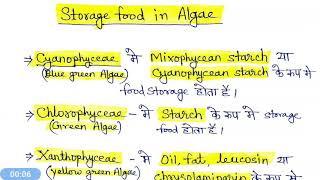 Storage food in Algae
→ Cyanophyceae मे Mixophycean starch या
(Blue green Algae) Cyanophycean starch के रूप मे
food storage होता हैं।
→ Chlorophyceae - मे Starch के रूप मे food
(Green Algae) storage होता हैं।
→ Xanthophyceae - मे Oil, fat, leucosin या
(yellow green Algae) chrysolaminarin के रूप मे
00:06